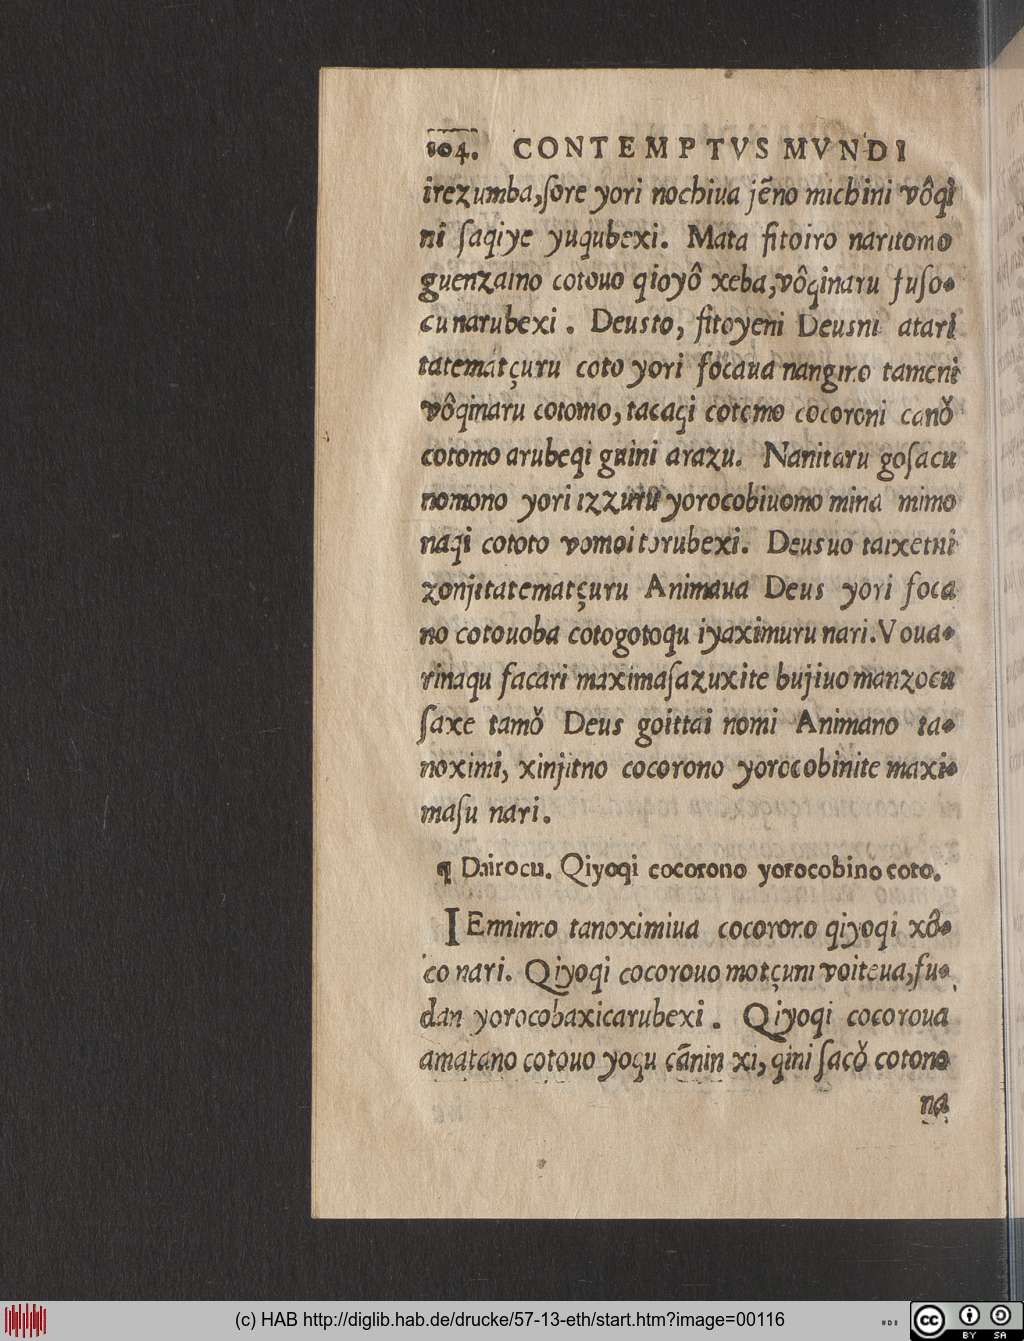 104. CONTEMPTVS MVNDI
irezumba, ſore yori nochiua jẽno michini vôqi
ni ſaqiye yuqubexi. Mata fitoiro naritomo
guenzaino cotouo qioyô xeba, vôqinaru fuſo-
cu narubexi. Deusto, fitoyeni Deusni atari
tatematçuru coto yori focaua nangiro tameni
vôqinaru cotomo, tacaqi cotomo cocoroni canǒ
cotomo arubeqi guini arazu. Nanitaru goſacu
nomono yori izzuru yorocobiuomo mina mimo
naqi cototo vomoitorubexi. Deusuo taixetni
zonjitatematçuru Animaua Deus yori foca
no cotouoba cotogotoqu iyaximuru nari. Voua-
rinaqu facari maximaſazuxite bujiuo manzocu
ſaxe tamǒ Deus goittai nomi Animano ta-
noximi, xinjitno cocorono yorocobinite maxi-
maſu nari.
¶ Dairocu. Qiyoqi cocorono yorocobino coto.
IEnninno tanoximiua cocorono qiyoqi xô-
co nari. Qiyoqi cocorouo motçuni voiteua, fu-
dan yorocobaxicarubexi. Qiyoqi cocoroua
amatano cotouo yoqu cãnin xi, qini ſacǒ cotono
na
(c) HAB http://diglib.hab.de/drucke/57-13-eth/start.htm?image=00116
cc BY SA